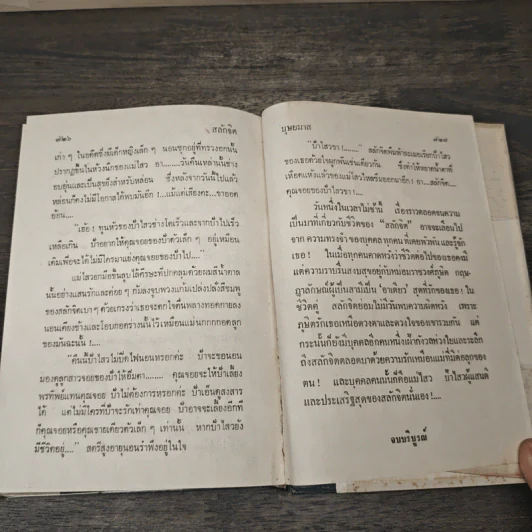 ๘๒๖ สลักจิต
เก่า ๆ ในอดีตซึ่งมีเด็กหญิงเล็ก ๆ นอนซุกอยู่ที่ทรวงอกนั้น
ปรากฏขึ้นในห้วงนึกของแม่ไสว อา........วันคืนเหล่านั้นช่าง
อบอุ่นและเป็นสุขยิ่งสำหรับหล่อน ซึ่งหลังจากวันนี้ไปแล้ว
หล่อนก็คงไม่มีโอกาสได้พบมันอีก! แม้แต่เสียงคะ....ขาออด
อ้อน....
"เธอ! ทูนหัวของป้าไสวช่างโตเร็วและจากป้าไปเร็ว
เหลือเกิน ป้าอยากให้คุณจอยของป้าตัวเล็ก ๆ อยู่เหมือน
เดิมเพื่อจะได้ไม่มีใครมาแย่งคุณจอยของป้าไป...."
แม่ไสวยกมือขึ้นลูบไล้ศีรษะที่ปกคลุมด้วยผมสีน้ำตาล
นั้นอย่างแสนรักและค่อย ๆ
ของสลักจิตเบา ๆ ด้วยเกรงว่าเธอจะตกใจตื่นพลางทอดกายลง
นอนเคียงข้างและโอบกอดร่างนั้นไว้เหมือนแม่นกกกกอดลูก
ของมันฉะนั้น!
"คืนนี้ป้าไสวไม่ปิดไฟนอนหรอกค่ะ ป้าจะขอนอน
มองคุณลูกสาวจอยของป้าให้อิ่มตา........ คุณจอยจะให้ป้าเลี้ยง
ได้ แต่ไม่มีใครที่ป้าจะรักเท่าคุณจอย ป้าอาจจะเลี้ยงอีกที
ก็คุณจอยหรือคุณชายเดียวตัวเล็ก ๆ เท่านั้น หากป้าไสวยัง
มีชีวิตอยู่...." สตรีสูงอายุนอนรำพึงอยู่ในใจ
บุษยมาส ๘๒๗
"ป้าไสวขา!........" สลักจิตพึมพำละเมอเรียกป้าไสว
ของเธอด้วยใจผูกพันเช่นเดียวกัน ซึ่งทำให้หยาดน้ำตาที่
เหือดแห้งแล้วของแม่ไสวไหลรินออกมาอีก! อา....สลักจิต....
คุณจอยของป้าไสวขา!....
วันหนึ่งในเวลาไม่ช้านี้ เรื่องราวตลอดจนความ
เป็นมาที่เกี่ยวกับชีวิตของ "สลักจิต" อาจจะเลือนไป
จาก ความทรงจำ ของบุคคล ทุกคน ที่เคยพบเห็น และรู้จัก
เธอ! ในเมื่อทุกคนคาดหวังว่าชีวิตต่อไปของเธอจะมี
แต่ ความราบรื่น สงบสุขอยู่กับหม่อมราชวงศ์ภูษิต กฤษ
ฎาลักษณ์ผู้เป็นสามีเป็น "อาเดียว" สุดที่รักของเธอ! ใน
ชีวิตคู่ สลักจิตย่อมไม่มีวันพบความผิดหวัง เพราะ
ภูษิตรักเธอเหมือนดวงตาและดวงใจของเขารวมกัน แต่
กระนั้นก็ยังมีบุคคลอีกคนหนึ่งเฝ้าห่วงใยและระลึก
ถึงสลักจิตตลอดมาด้วยความรักเหมือนแม่ที่มีต่อลูกของ
ตน! และบุคคลคนนั้นก็คือแม่ไสว ป้าไสวผู้แสนดี
และประเสริฐสุดของสลักจิตนั่นเอง!....
จบบริบูรณ์